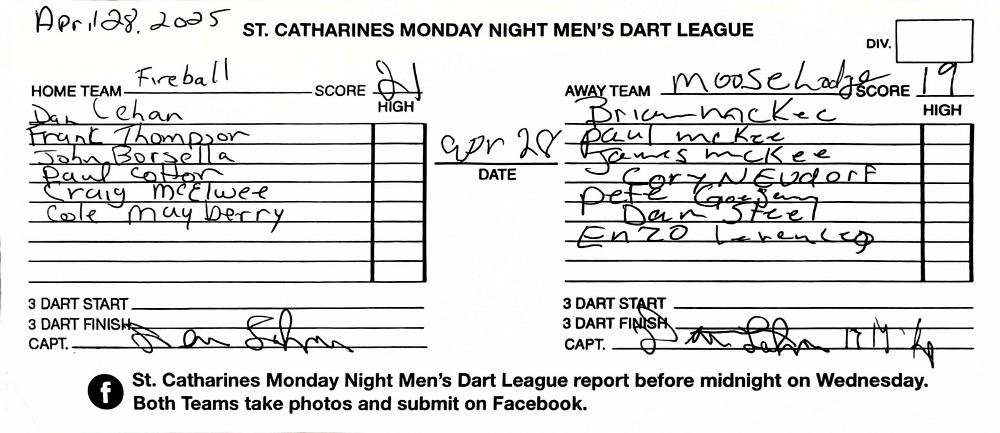 April 28, 2025
ST. CATHARINES MONDAY NIGHT MEN'S DART LEAGUE
DIV.
HOME TEAM Fireball SCORE 21
HIGH
Dan Lehan
Frank Thompson
John Borsella
Paul Cotton
Craig McElwee
Cole Mayberry
apr 28
DATE
AWAY TEAM Moose Lodge SCORE 19
HIGH
Brian McKee
Paul McKee
James McKee
Cory NEudorf
Pete
Dan Steel
Enzo
3 DART START
3 DART FINISH
CAPT. Dan
3 DART START
3 DART FINISH
CAPT.
St. Catharines Monday Night Men's Dart League report before midnight on Wednesday.
Both Teams take photos and submit on Facebook.